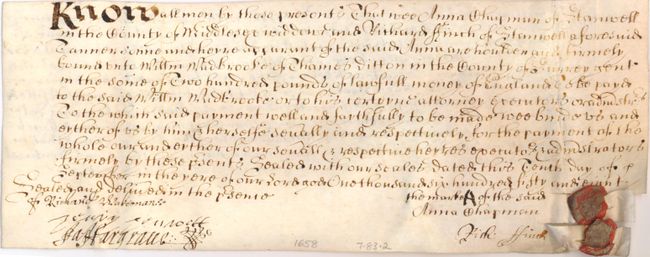 Know all men by these presents That wee Anna Chapman of Stanwell
in the County of Middlesex widdowe and Richard Finch of Stanwell aforesaid
Tanner sonne and heyre apparant of the said Anna are houlden and firmely
bound unto Willm of Thames ditton in the County of Surrey gent
in the some of Two hundred pounds of lawfull money of England to be payd
to the said Willm or to his certeyne attorney executors or administrs
To the which said payment well and faithfully to be made wee binde us and
eyther of us by him & herselfe severally and respectively, for the payment of the
whole our and eyther of our severall & respective heyres executors & administrators
firmely by these presents Sealed with our seales dated this Tenth day of
September in the yere of our lord god One thousand six hundred fifty and eight
Sealed and delivered in the presence
of Richard
the marke A of the said
Anna Chapman
Rich Ffinch
1658
7-83-2